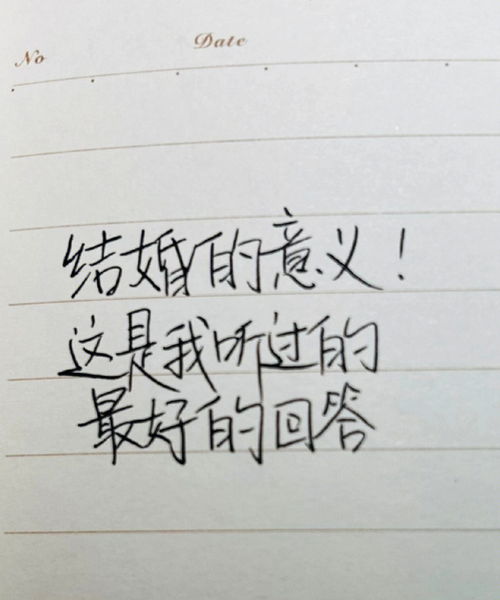 No Date
结婚的意义!
这是我听过的
最好的回答